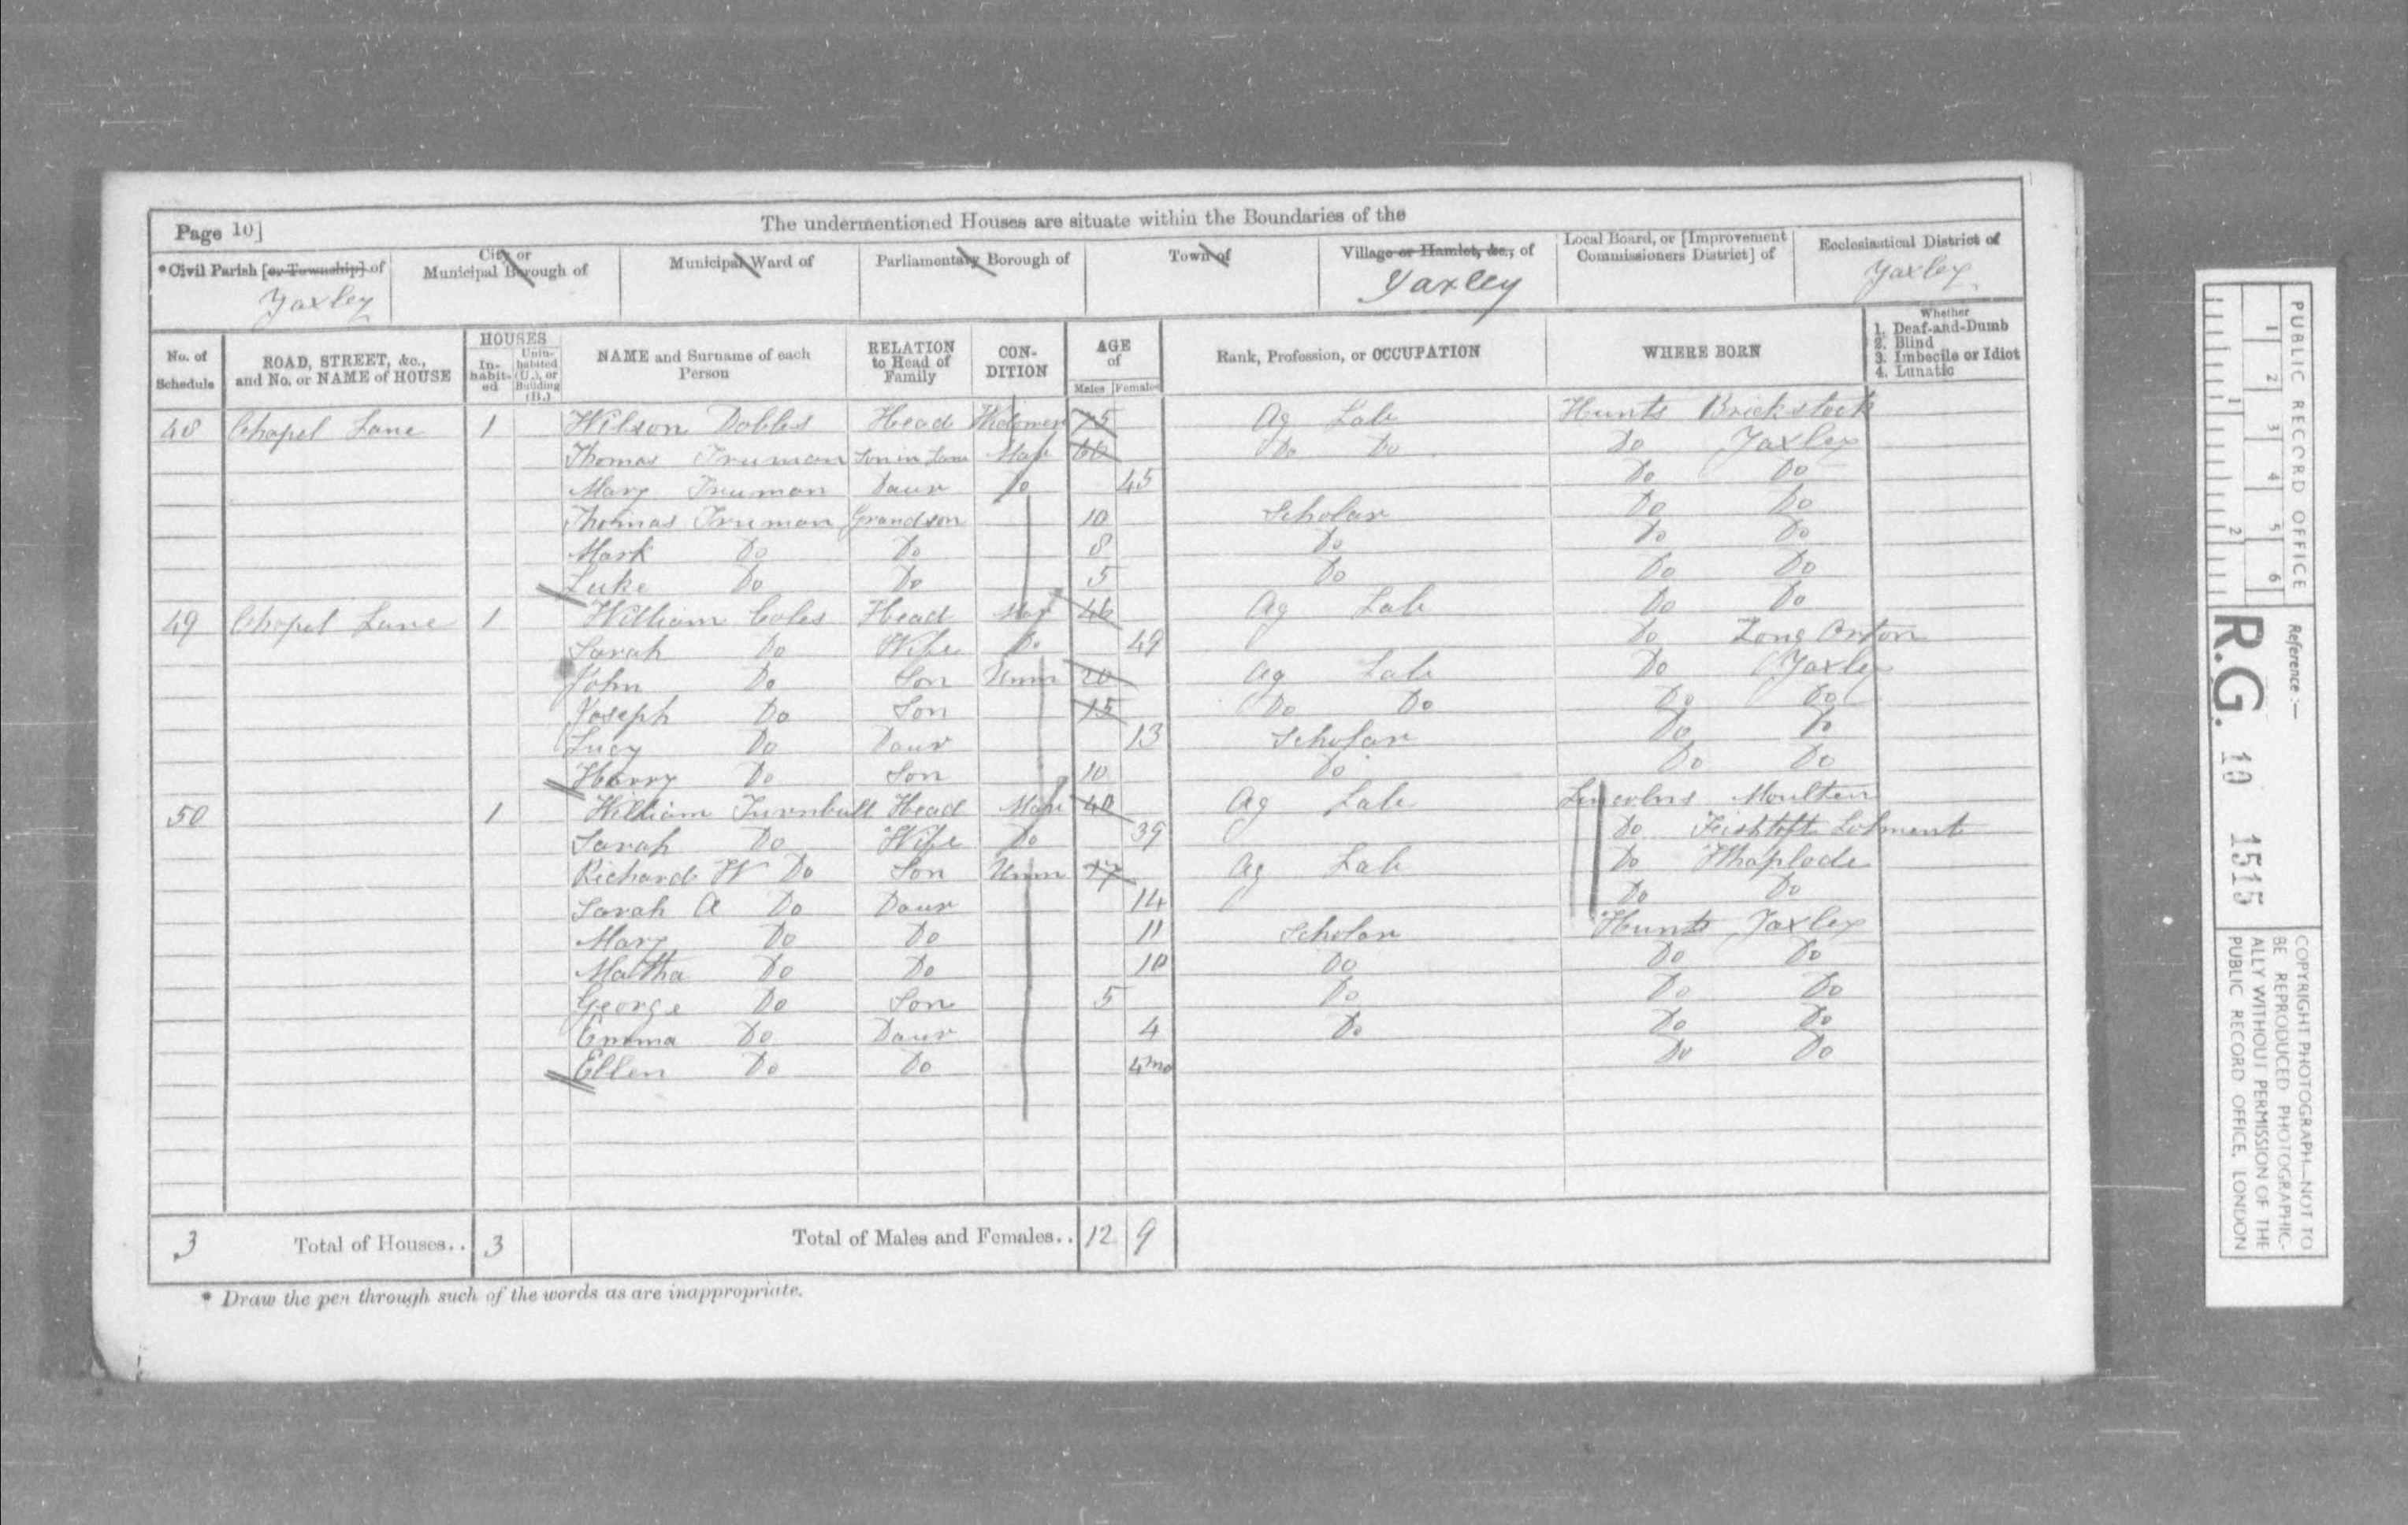 Page 10]
The undermentioned Houses are situate within the Boundaries of the
*Civil Parish [or Township] of
Yaxley
City or Municipal Borough of
Municipal Ward of
Parliamentary Borough of
Town of
Village or Hamlet, &c., of
Yaxley
Local Board, or [Improvement Commissioners District] of
Ecclesiastical District of
Yaxley
No. of Schedule
ROAD, STREET, &c., and No. or NAME of HOUSE
HOUSES
In-habit-ed
Unin-habited (U.), or Building (B.)
NAME and Surname of each Person
RELATION to Head of Family
CON-DITION
AGE of
Males Females
Rank, Profession, or OCCUPATION
WHERE BORN
Whether
1. Deaf-and-Dumb
2. Blind
3. Imbecile or Idiot
4. Lunatic
48 Chapel Lane 1 Wilson Dobbs Head Widower 75 Ag Lab Hunts Brickstock
Thomas Truman Son in Law Mar 60 Do Do Do Yaxley
Mary Truman Daur Do 45 Do Do
Thomas Truman Grandson 10 Scholar Do Do
Mark Do Do 8 Do Do Do
Luke Do Do 5 Do Do Do
49 Chapel Lane 1 William Coles Head Mar 46 Ag Lab Do Do
Sarah Do Wife Do 49 Do Long Orton
John Do Son Unm 20 Ag Lab Do Yaxley
Joseph Do Son 15 Do Do Do Do
Lucy Do Daur 13 Scholar Do Do
Harry Do Son 10 Do Do Do
50 1 William Turnbull Head Mar 40 Ag Lab Lincolns Moulton
Sarah Do Wife Do 39 Do Fishtoft
Richard W Do Son Unm 17 Ag Lab Do Whaplode
Sarah A Do Daur 14 Do Do
Mary Do Do 11 Scholar Hunts Yaxley
Martha Do Do 10 Do Do Do
George Do Son 5 Do Do Do
Emma Do Daur 4 Do Do Do
Ellen Do Do 4mo Do Do
3 Total of Houses.. 3 Total of Males and Females.. 12 9
* Draw the pen through such of the words as are inappropriate.
PUBLIC RECORD OFFICE
1 2 3 4 5 6
1 2
Reference:—
R.G. 10 1515
COPYRIGHT PHOTOGRAPH—NOT TO
BE REPRODUCED PHOTOGRAPHIC-
ALLY WITHOUT PERMISSION OF THE
PUBLIC RECORD OFFICE, LONDON